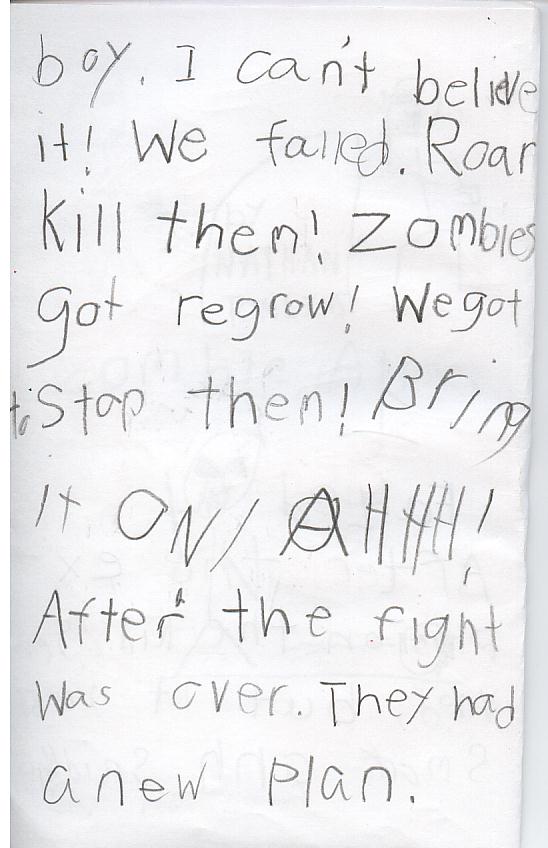 boy. I can't belive
it! We failed. Roar
Kill then! Zombies
got regrow! We got
to stop then! Bring
It ON! AHHHH!
After the fight
was over. They had
a new plan.